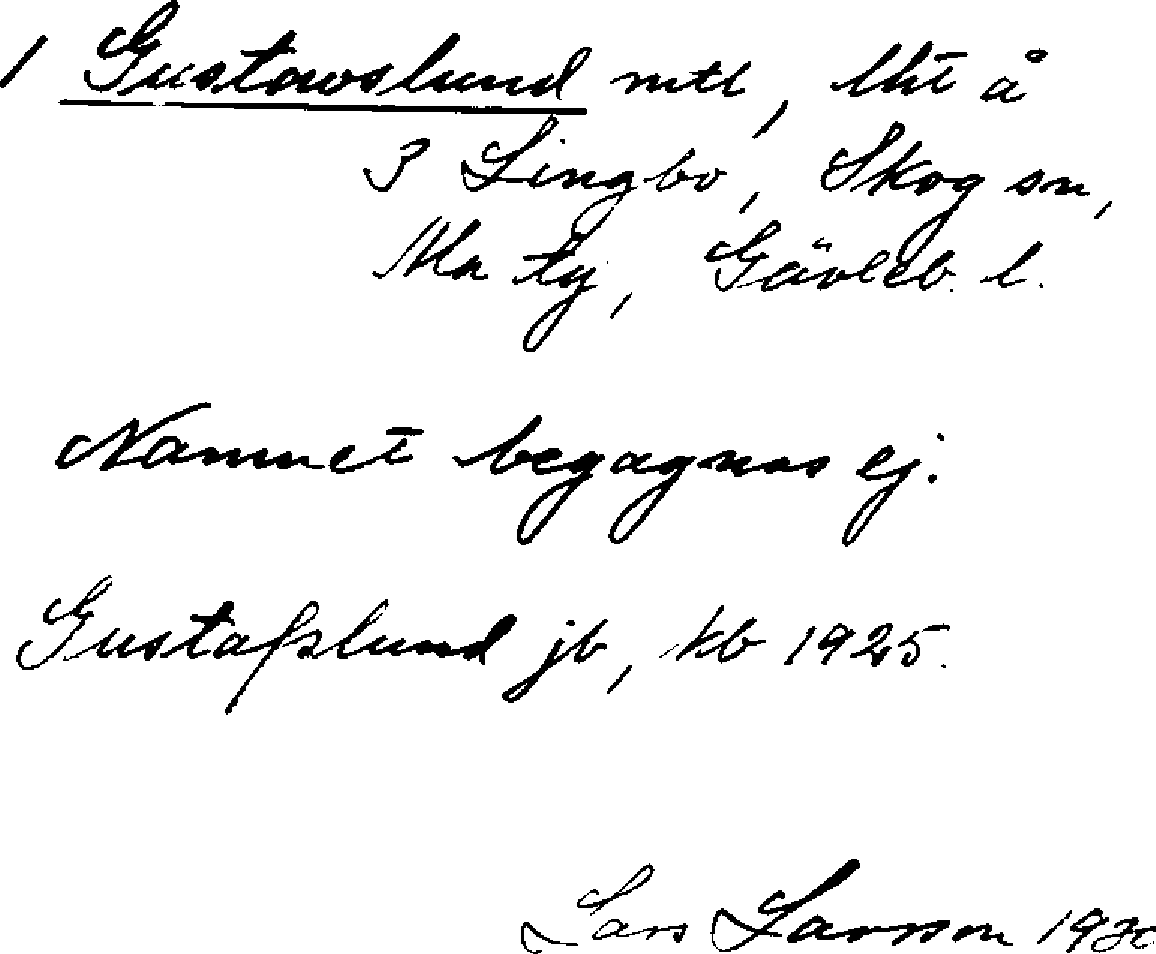 1 Gustavslund mtl, lht å
3 Lingbo, Skog sn,
Ala tg, Gävleb. l.
Namnet begagnas ej.
Gustafslund jb, kb 1925.
Lars Larsson 1930